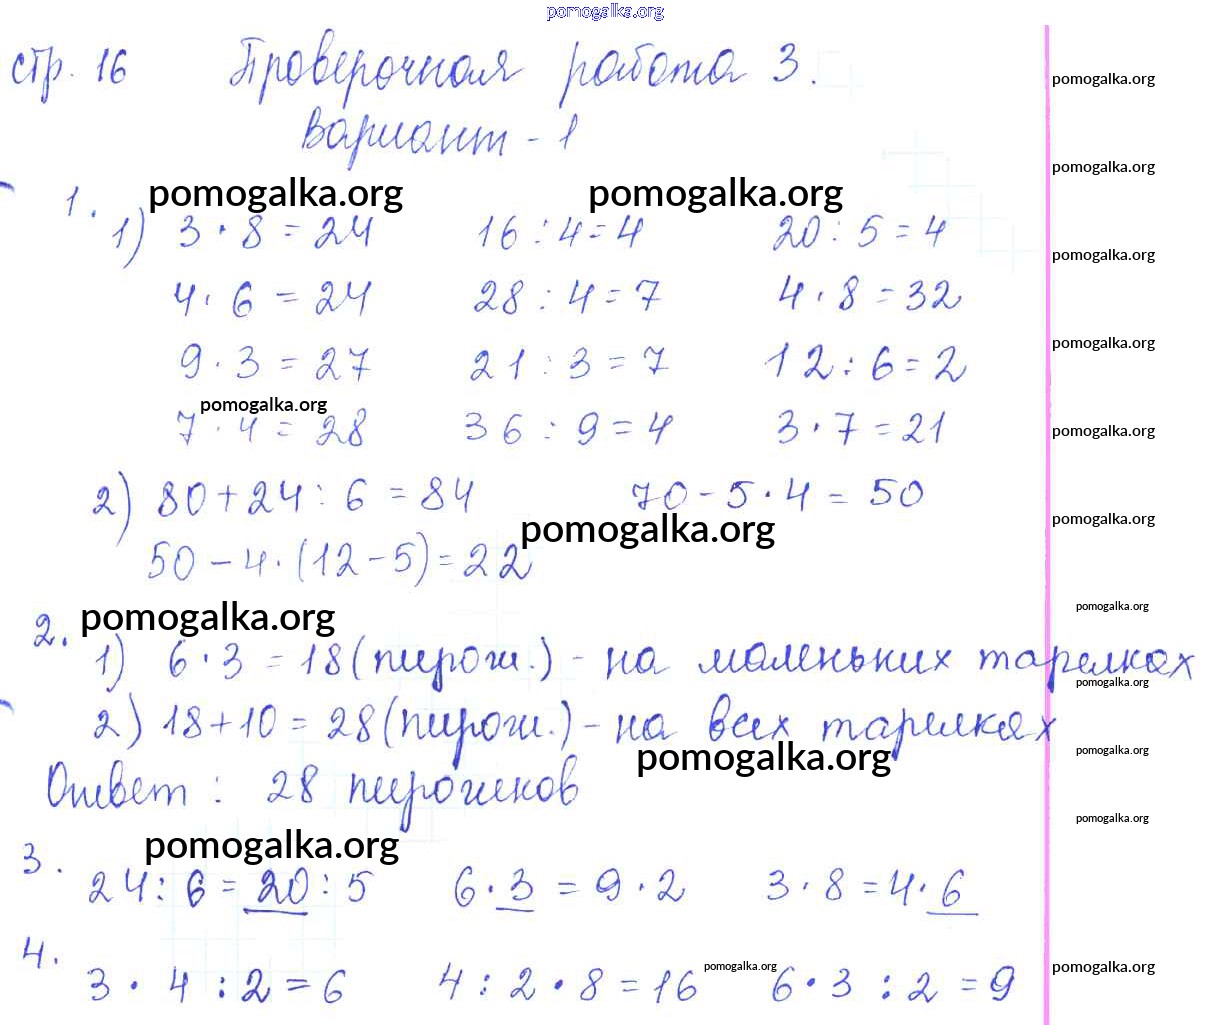 pomogalka.org
стр. 16 Проверочная работа 3.
pomogalka.org
Вариант - 1
pomogalka.org
1. pomogalka.org pomogalka.org
1) 3 · 8 = 24 16 : 4 = 4 20 : 5 = 4
pomogalka.org
4 · 6 = 24 28 : 4 = 7 4 · 8 = 32
pomogalka.org
9 · 3 = 27 21 : 3 = 7 12 : 6 = 2
pomogalka.org
7 · 4 = 28 36 : 9 = 4 3 · 7 = 21
pomogalka.org
2) 80 + 24 : 6 = 84 70 - 5 · 4 = 50
pomogalka.org pomogalka.org
50 - 4 · (12 - 5) = 22
pomogalka.org
2. pomogalka.org
1) 6 · 3 = 18 (пирож.) - на маленьких тарелках
pomogalka.org
2) 18 + 10 = 28 (пирож.) - на всех тарелках
pomogalka.org pomogalka.org
Ответ : 28 пирожков
pomogalka.org
pomogalka.org
3. 24 : 6 = 20 : 5 6 · 3 = 9 · 2 3 · 8 = 4 · 6
4. pomogalka.org pomogalka.org
3 · 4 : 2 = 6 4 : 2 · 8 = 16 6 · 3 : 2 = 9